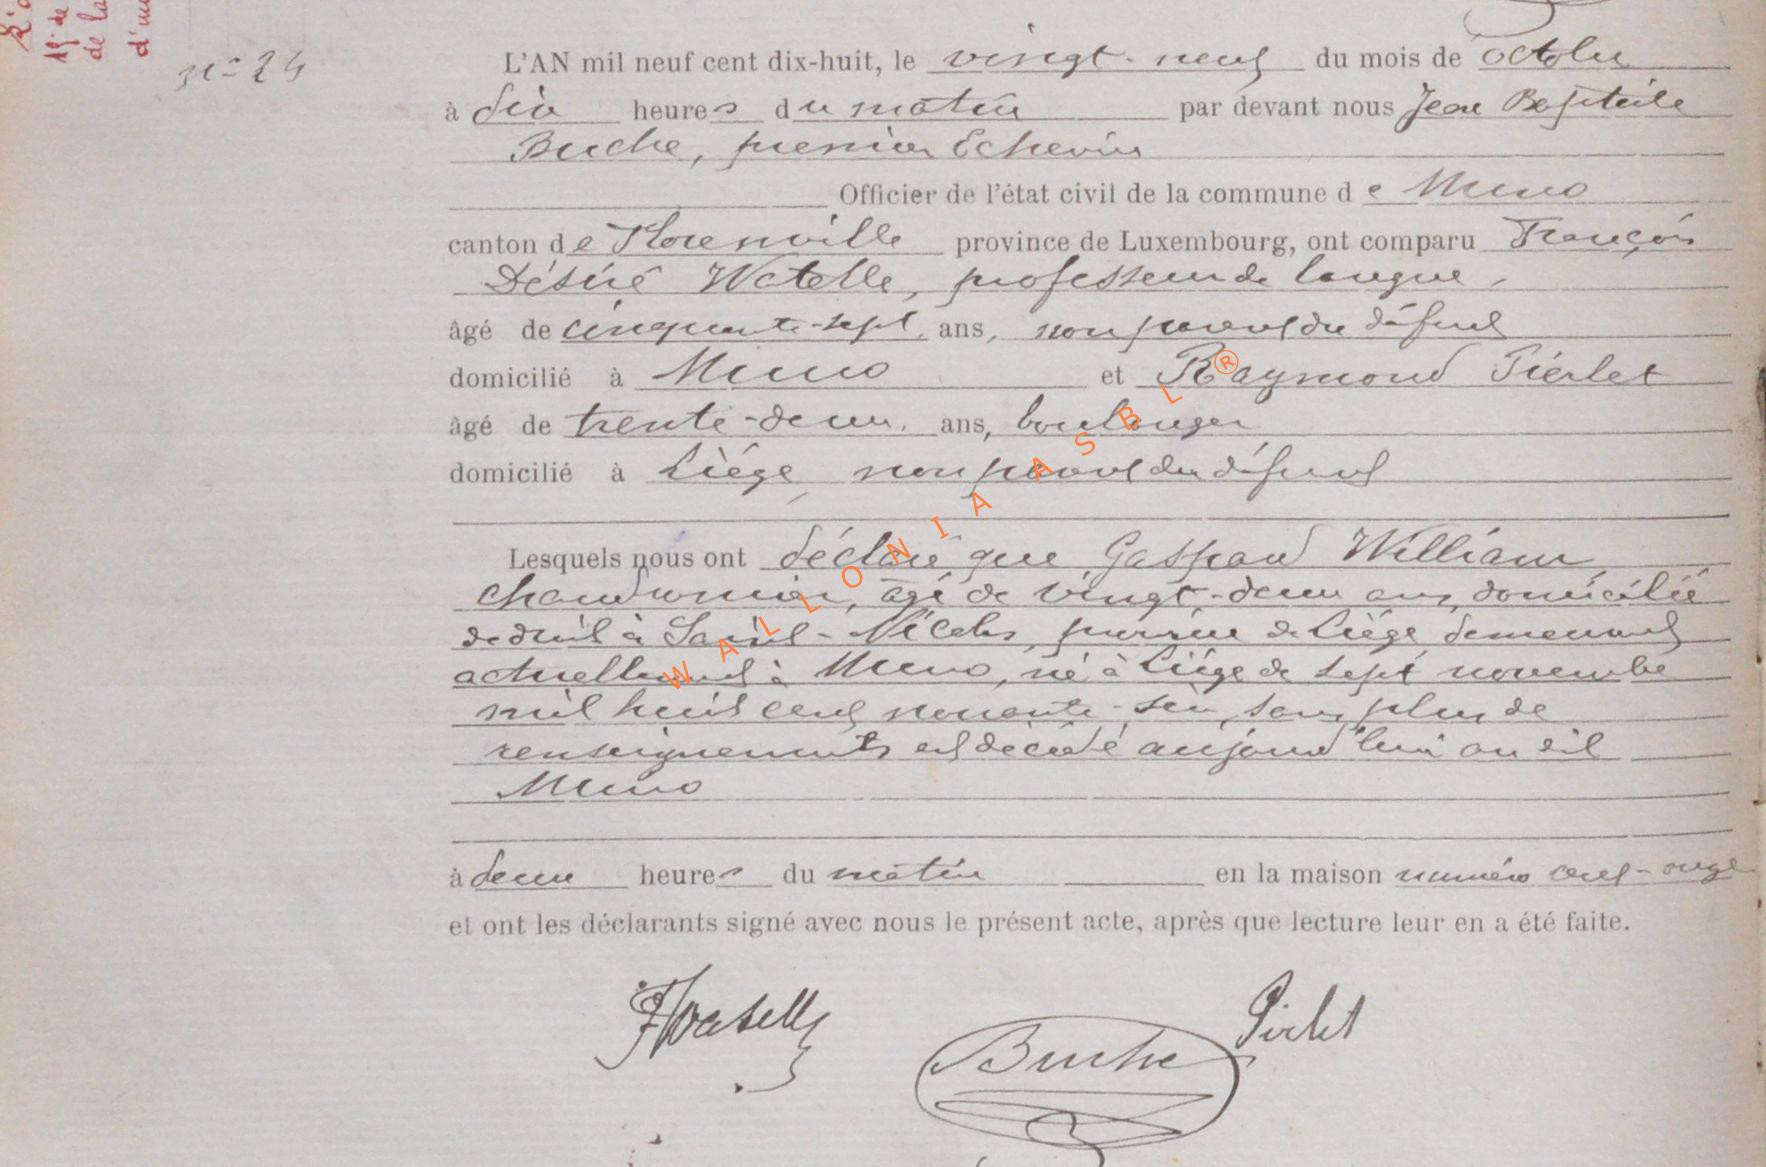 n° 24
L'AN mil neuf cent dix-huit, le vingt-neuf du mois de octobre
à dix heures du matin par devant nous Jean Baptiste
Buche, premier Echevin
Officier de l'état civil de la commune de Muno
canton de Florenville province de Luxembourg, ont comparu François
Désiré Watelle, professeur de langue,
âgé de cinquante-sept ans, non parent du défunt
domicilié à Muno et Raymond Piérlet
âgé de trente-deux ans, boulanger
domicilié à Liége non parent du défunt
Lesquels nous ont déclaré que Gaspard William
chaudronnier, âgé de vingt-deux ans, domicilié
de droit à Saint-Nicolas, province de Liége demeurant
actuellement à Muno, né à Liége le sept novembre
mil huit cent nonante-six, sans plus de
renseignements est décédé aujourd'hui au dit
Muno
à deux heures du matin en la maison numéro cent-onze
et ont les déclarants signé avec nous le présent acte, après que lecture leur en a été faite.
FWatelle
Buche
Pirlet
WALLONIA ASBL ®